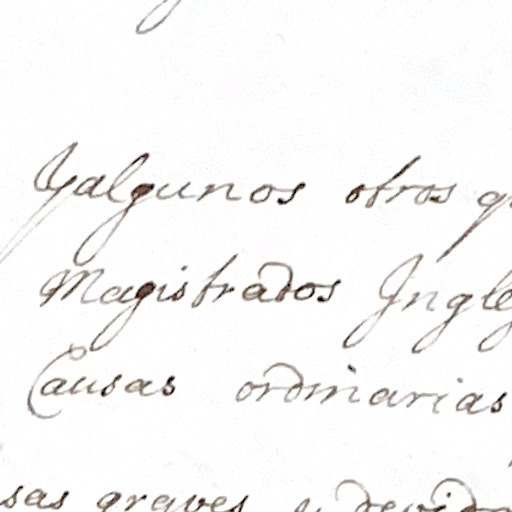 Yalgunos otros q
Magistrados Ingle
Causas ordinarias
sas graves y devido